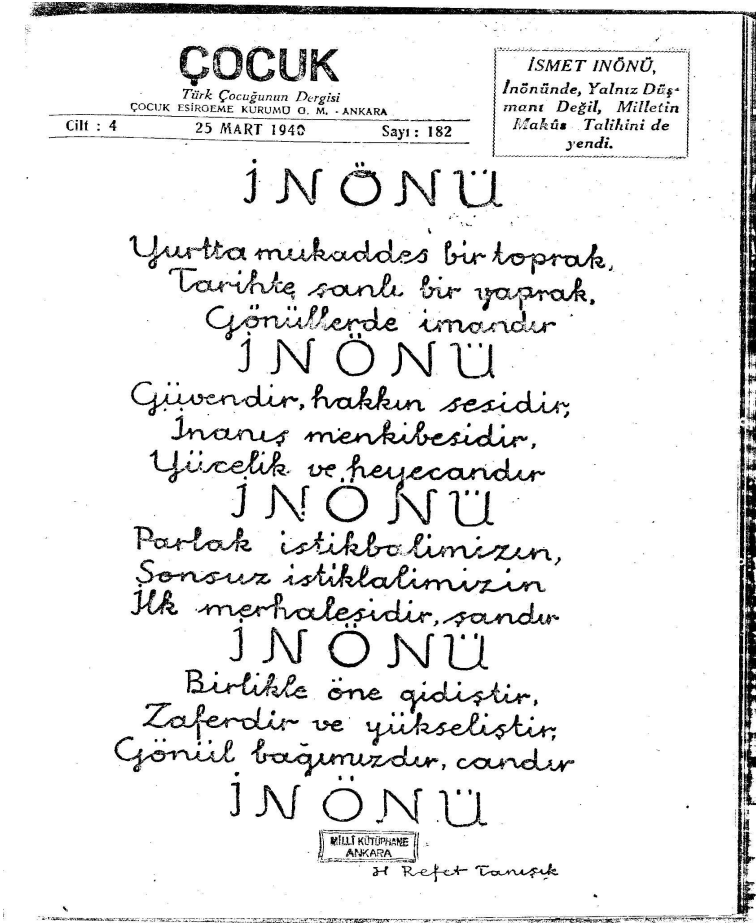 ÇOCUK
Türk Çocuğunun Dergisi
ÇOCUK ESİRGEME KURUMU G. M. - ANKARA
Cilt : 4 25 MART 1940 Sayı : 182
İSMET INÖNÜ,
İnönünde, Yalnız Düş-
manı Değil, Milletin
Makûs Talihini de
yendi.
İNÖNÜ
Yurtta mukaddes bir toprak,
Tarihte şanlı bir yaprak,
Gönüllerde imandır
İNÖNÜ
Güvendir, hakkın sesidir,
İnanış menkibesidir,
Yücelik ve heyecandır
İNÖNÜ
Parlak istikbalimizin,
Sonsuz istiklalimizin
İlk merhalesidir, şandır
İNÖNÜ
Birlikle öne gidiştir,
Zaferdir ve yükseliştir,
Gönül bağımızdır, candır
İNÖNÜ
MİLLÎ KÜTÜPHANE
ANKARA
H Refet Tanışık